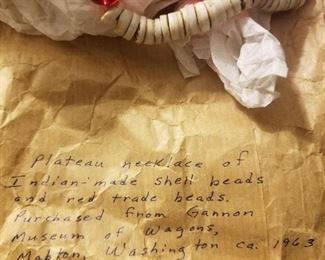 Plateau necklace of
Indian-made shell beads
and red trade beads.
Purchased from Gannon
Museum of Wagons,
Mabton, Washington ca. 1963